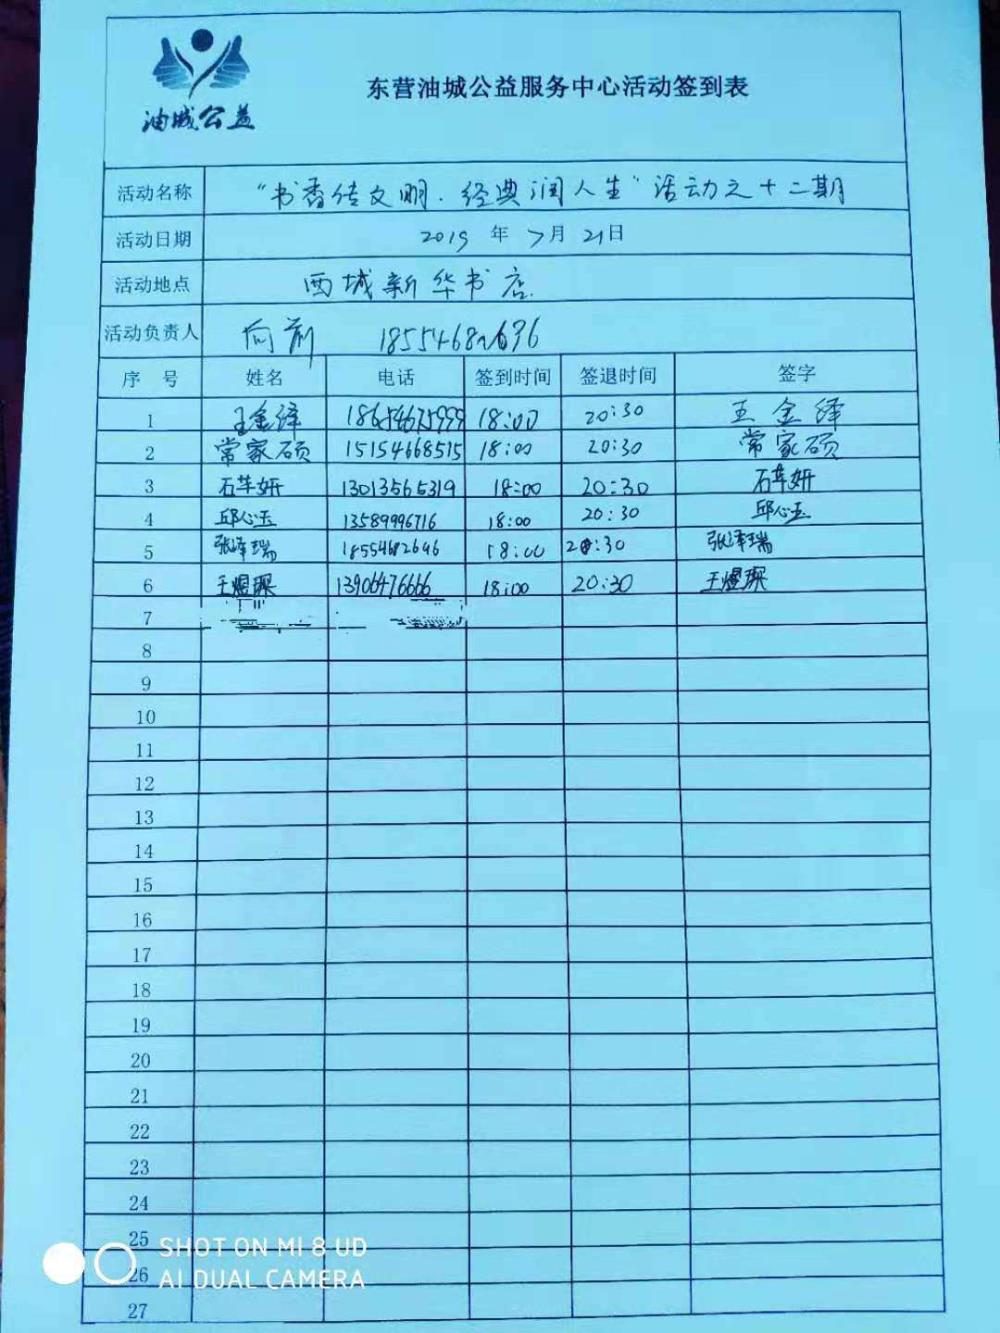 油城公益
东营油城公益服务中心活动签到表
活动名称 “书香传文明·经典润人生”活动之十二期
活动日期 2019 年 7月 21日
活动地点 西城新华书店
活动负责人 向前
序 号 姓名 电话 签到时间 签退时间 签字
1 王金绎 18654675999 18:00 20:30 王金绎
2 常家硕 15154668515 18:00 20:30 常家硕
3 石芊妍 13013565319 18:00 20:30 石芊妍
4 邱心玉 13589996716 18:00 20:30 邱心玉
5 张泽瑞 18554682646 18:00 20:30 张泽瑞
6 王煜琛 13906476666 18:00 20:30 王煜琛
7
8
9
10
11
12
13
14
15
16
17
18
19
20
21
22
23
24
25
26
27
SHOT ON MI 8 UD
AI DUAL CAMERA